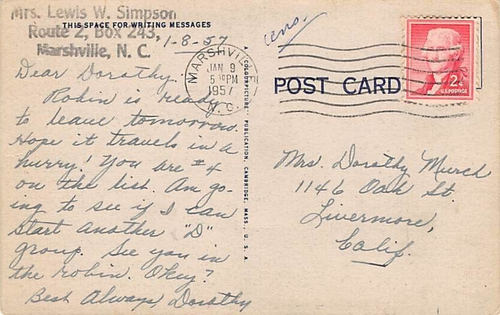 Mrs. Lewis W. Simpson
THIS SPACE FOR WRITING MESSAGES
Route 2, Box 243,
Marshville, N. C.
1-8-57
Dear Dorothy,
Robin is ready
to leave tomorrow.
Hope it travels in a
hurry! You are #4
on the list. Am go-
ing to see if I can
start another "D"
group. See you in
the robin. Okey?
Best Always, Dorothy
COLORPICTURE PUBLICATION, CAMBRIDGE, MASS., U.S.A.
MARSHVILLE
JAN 9
5 PM
1957
N.C.
ans.
POST CARD
2¢
U.S. POSTAGE
Mrs. Dorothy Murch
1146 Oak St.
Livermore,
Calif.